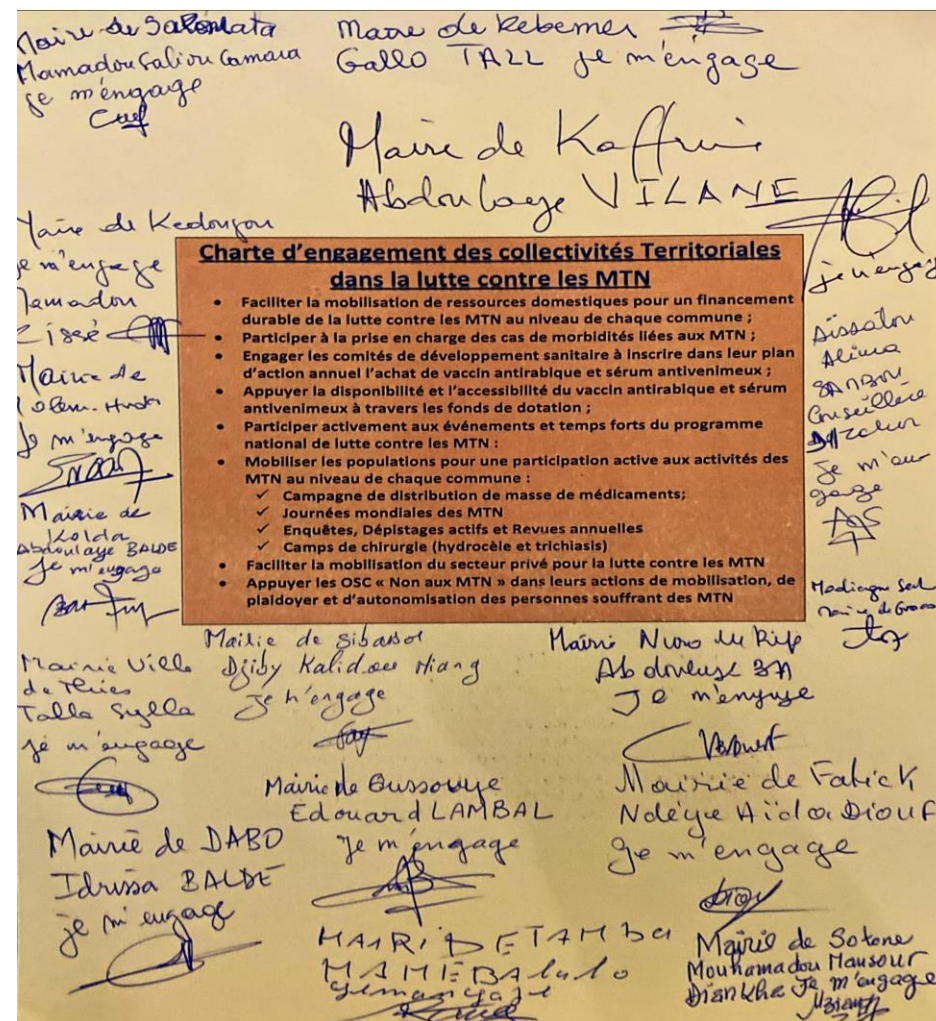 Maire de Salémata
Mamadou Saliou Camara
je m'engage
Maire de Kebemer
Gallo TALL je m'engage
Maire de Kaffrine
Abdoulaye VILANE
je m'engage
Maire de Kedougou
je m'engage
Mamadou
Cissé
Charte d'engagement des collectivités Territoriales
dans la lutte contre les MTN
• Faciliter la mobilisation de ressources domestiques pour un financement
durable de la lutte contre les MTN au niveau de chaque commune ;
• Participer à la prise en charge des cas de morbidités liées aux MTN ;
• Engager les comités de développement sanitaire à inscrire dans leur plan
d'action annuel l'achat de vaccin antirabique et sérum antivenimeux ;
• Appuyer la disponibilité et l'accessibilité du vaccin antirabique et sérum
antivenimeux à travers les fonds de dotation ;
• Participer activement aux événements et temps forts du programme
national de lutte contre les MTN :
• Mobiliser les populations pour une participation active aux activités des
MTN au niveau de chaque commune :
✓ Campagne de distribution de masse de médicaments;
✓ Journées mondiales des MTN
✓ Enquêtes, Dépistages actifs et Revues annuelles
✓ Camps de chirurgie (hydrocèle et trichiasis)
• Faciliter la mobilisation du secteur privé pour la lutte contre les MTN
• Appuyer les OSC « Non aux MTN » dans leurs actions de mobilisation, de
plaidoyer et d'autonomisation des personnes souffrant des MTN
Mairie de
je m'engage
Mairie de
Kolda
Abdoulaye BALDE
Je m'engage
Aissatou
Alima
SANBOU
Conseillère
Je m'en
gage
Mairie Ville
de Thies
Talla Sylla
je m'engage
Mairie de
Djiby Kalidou
Je m'engage
Mairie Nioro du Rip
BA
Je m'engage
Mairie de Oussouye
Edouard LAMBAL
Je m'engage
Mairie de Fatick
Ndèye Aïda Diouf
Je m'engage
Mairie de DABO
Idrissa BALDE
je m'engage
MAIRI DE TAMBA
Mairie de Sokone
Mouhamadou Mansour
Je m'engage